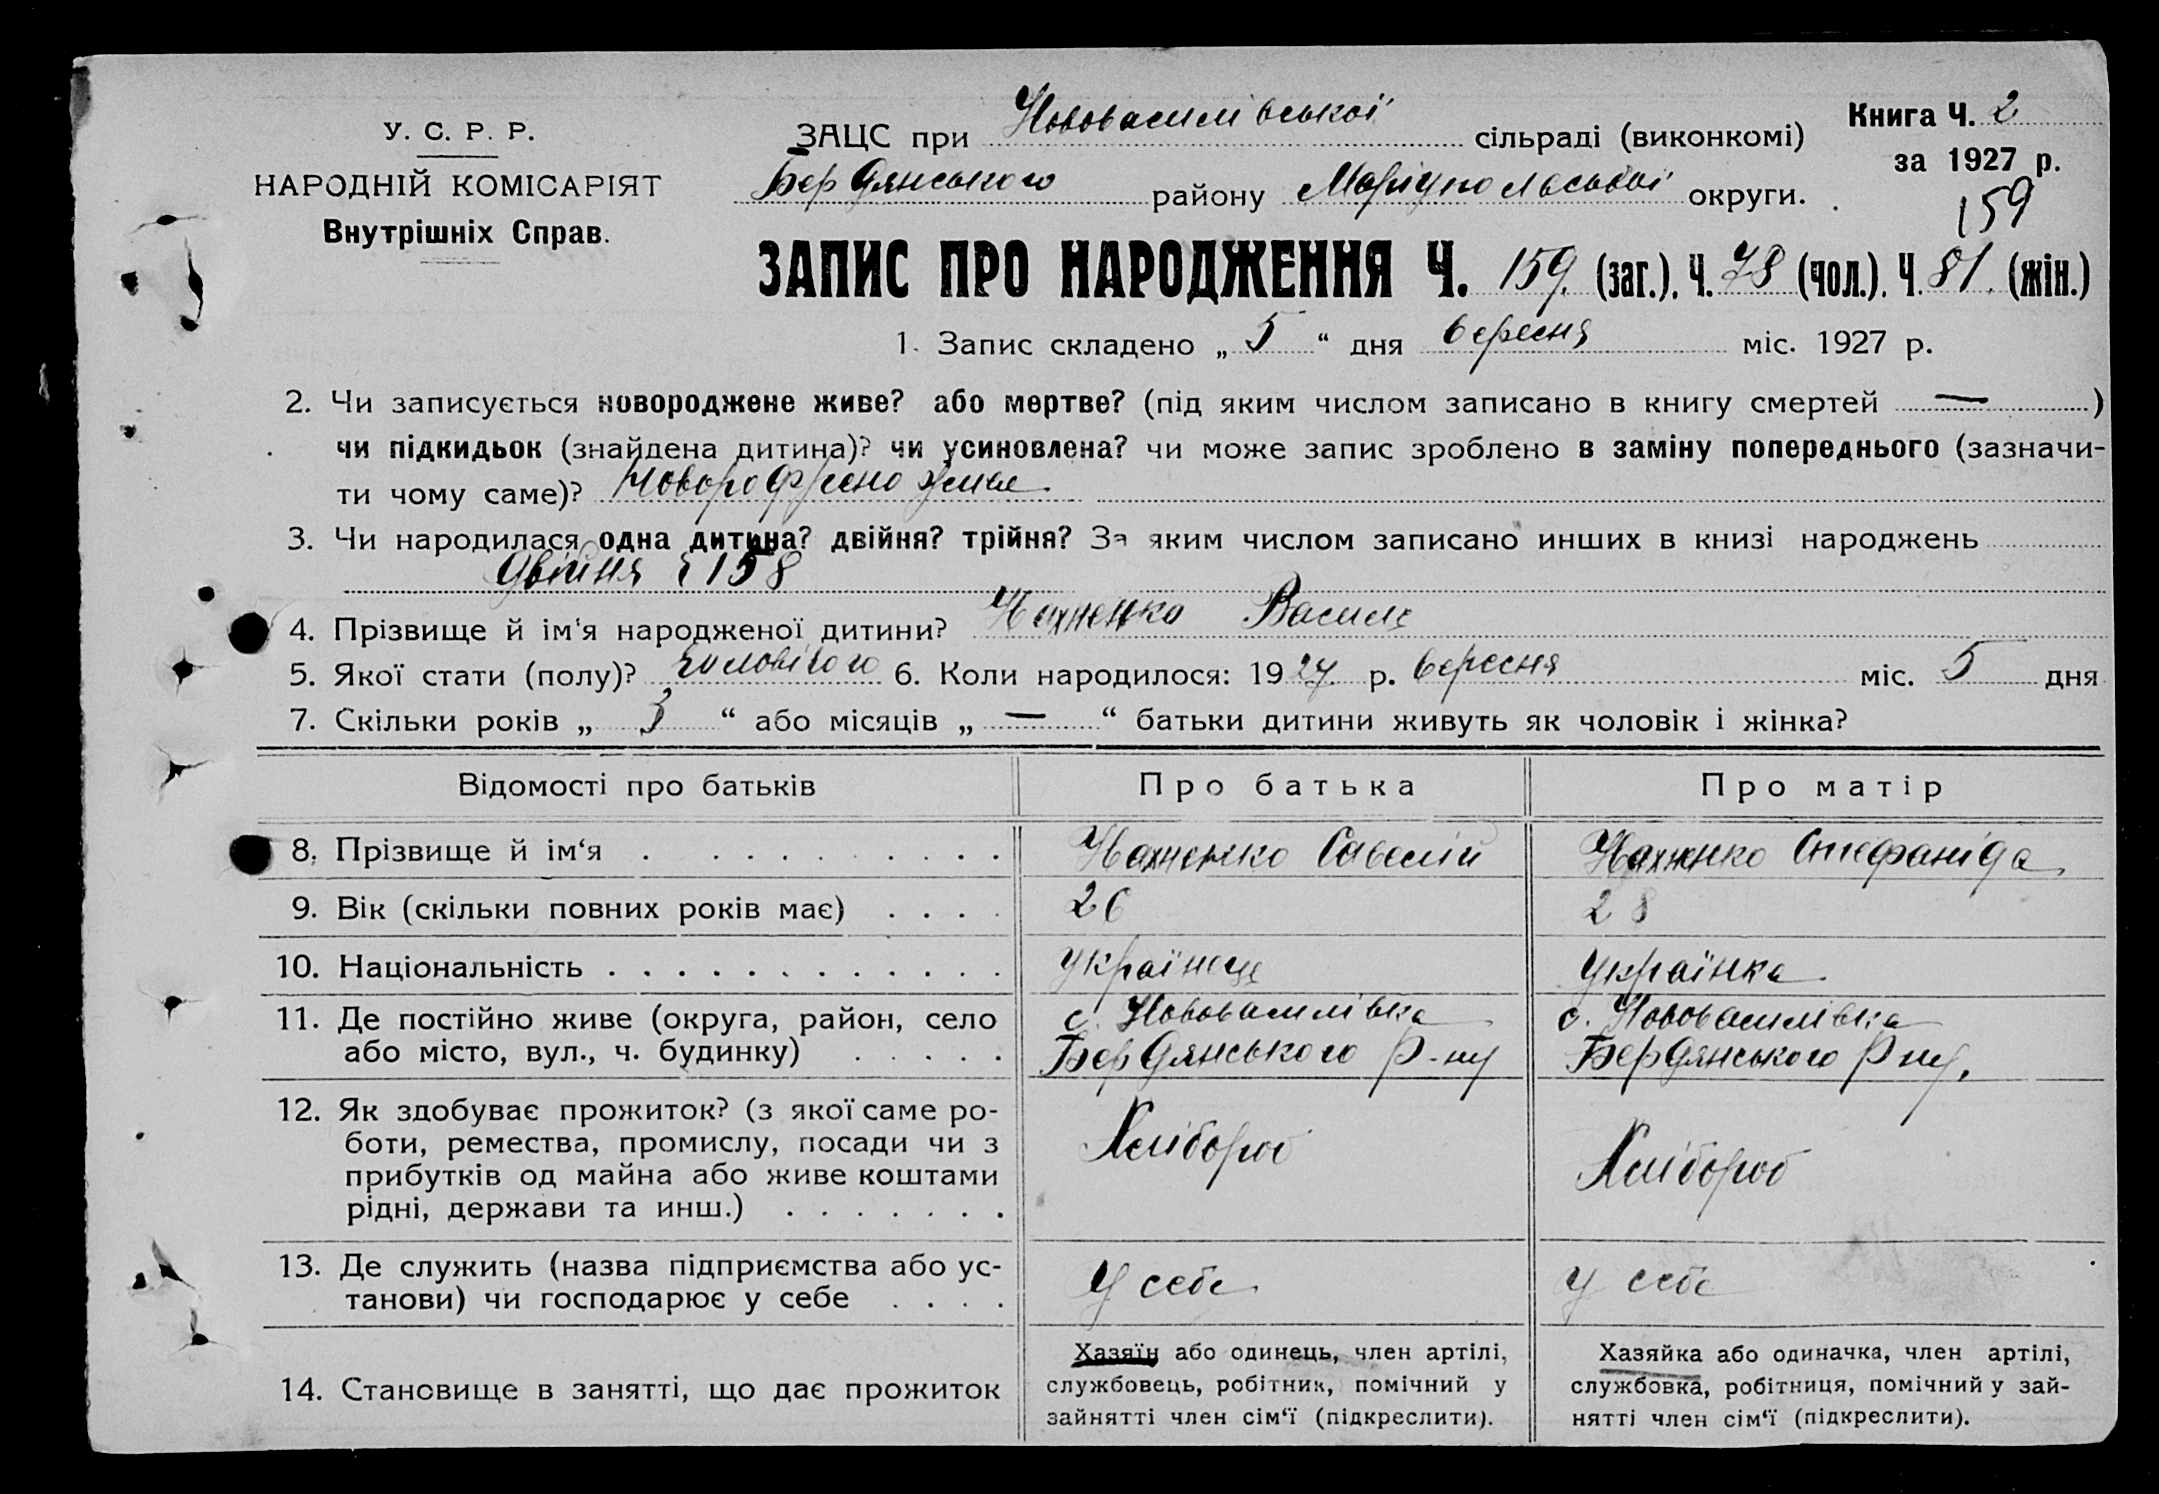 У. С. Р. Р.
НАРОДНІЙ КОМІСАРІЯТ
Внутрішніх Справ.
ЗАЦС при Нововасилівської сільраді (виконкомі)
Бердянського району Маріупольської округи.
Книга Ч. 2
за 1927 р.
159
ЗАПИС ПРО НАРОДЖЕННЯ Ч. 159. (заг.). Ч. 78 (чол.). Ч. 81. (жін.)
1. Запис складено „ 5 “ дня вересня міс. 1927 р.
2. Чи записується новороджене живе? або мертве? (під яким числом записано в книгу смертей — )
чи підкидьок (знайдена дитина)? чи усиновлена? чи може запис зроблено в заміну попереднього (зазначи-
ти чому саме)? Новороджено живе
3. Чи народилася одна дитина? двійня? трійня? За яким числом записано инших в книзі народжень
двійня ч 158
4. Прізвище й ім'я народженої дитини? Нахненко Василь
5. Якої стати (полу)? чоловічого 6. Коли народилося: 1927 р. вересня міс. 5 дня
7. Скільки років „ 3 “ або місяців „ — “ батьки дитини живуть як чоловік і жінка?
Відомості про батьків Про батька Про матір
8. Прізвище й ім‘я . . . . . . . . . . Нахненко Савелій Нахненко Стефаніда
9. Вік (скільки повних років має) . . . . 26 28
10. Національність . . . . . . . . . . . . українець українка
11. Де постійно живе (округа, район, село
або місто, вул., ч. будинку) . . . . .
с. Нововасилівка
Бердянського р-ну
с. Нововасилівка
Бердянського р ну,
12. Як здобуває прожиток? (з якої саме ро-
боти, ремества, промислу, посади чи з
прибутків од майна або живе коштами
рідні, держави та инш.) . . . . . . .
Хлібороб
Хлібороб
13. Де служить (назва підприємства або ус-
танови) чи господарює у себе . . . .
У себе
у себе
14. Становище в занятті, що дає прожиток
Хазяїн або одинець, член артілі,
службовець, робітник, помічний у
зайнятті член сім‘ї (підкреслити).
Хазяйка або одиначка, член артілі,
службовка, робітниця, помічний у зай-
нятті член сім‘ї (підкреслити).